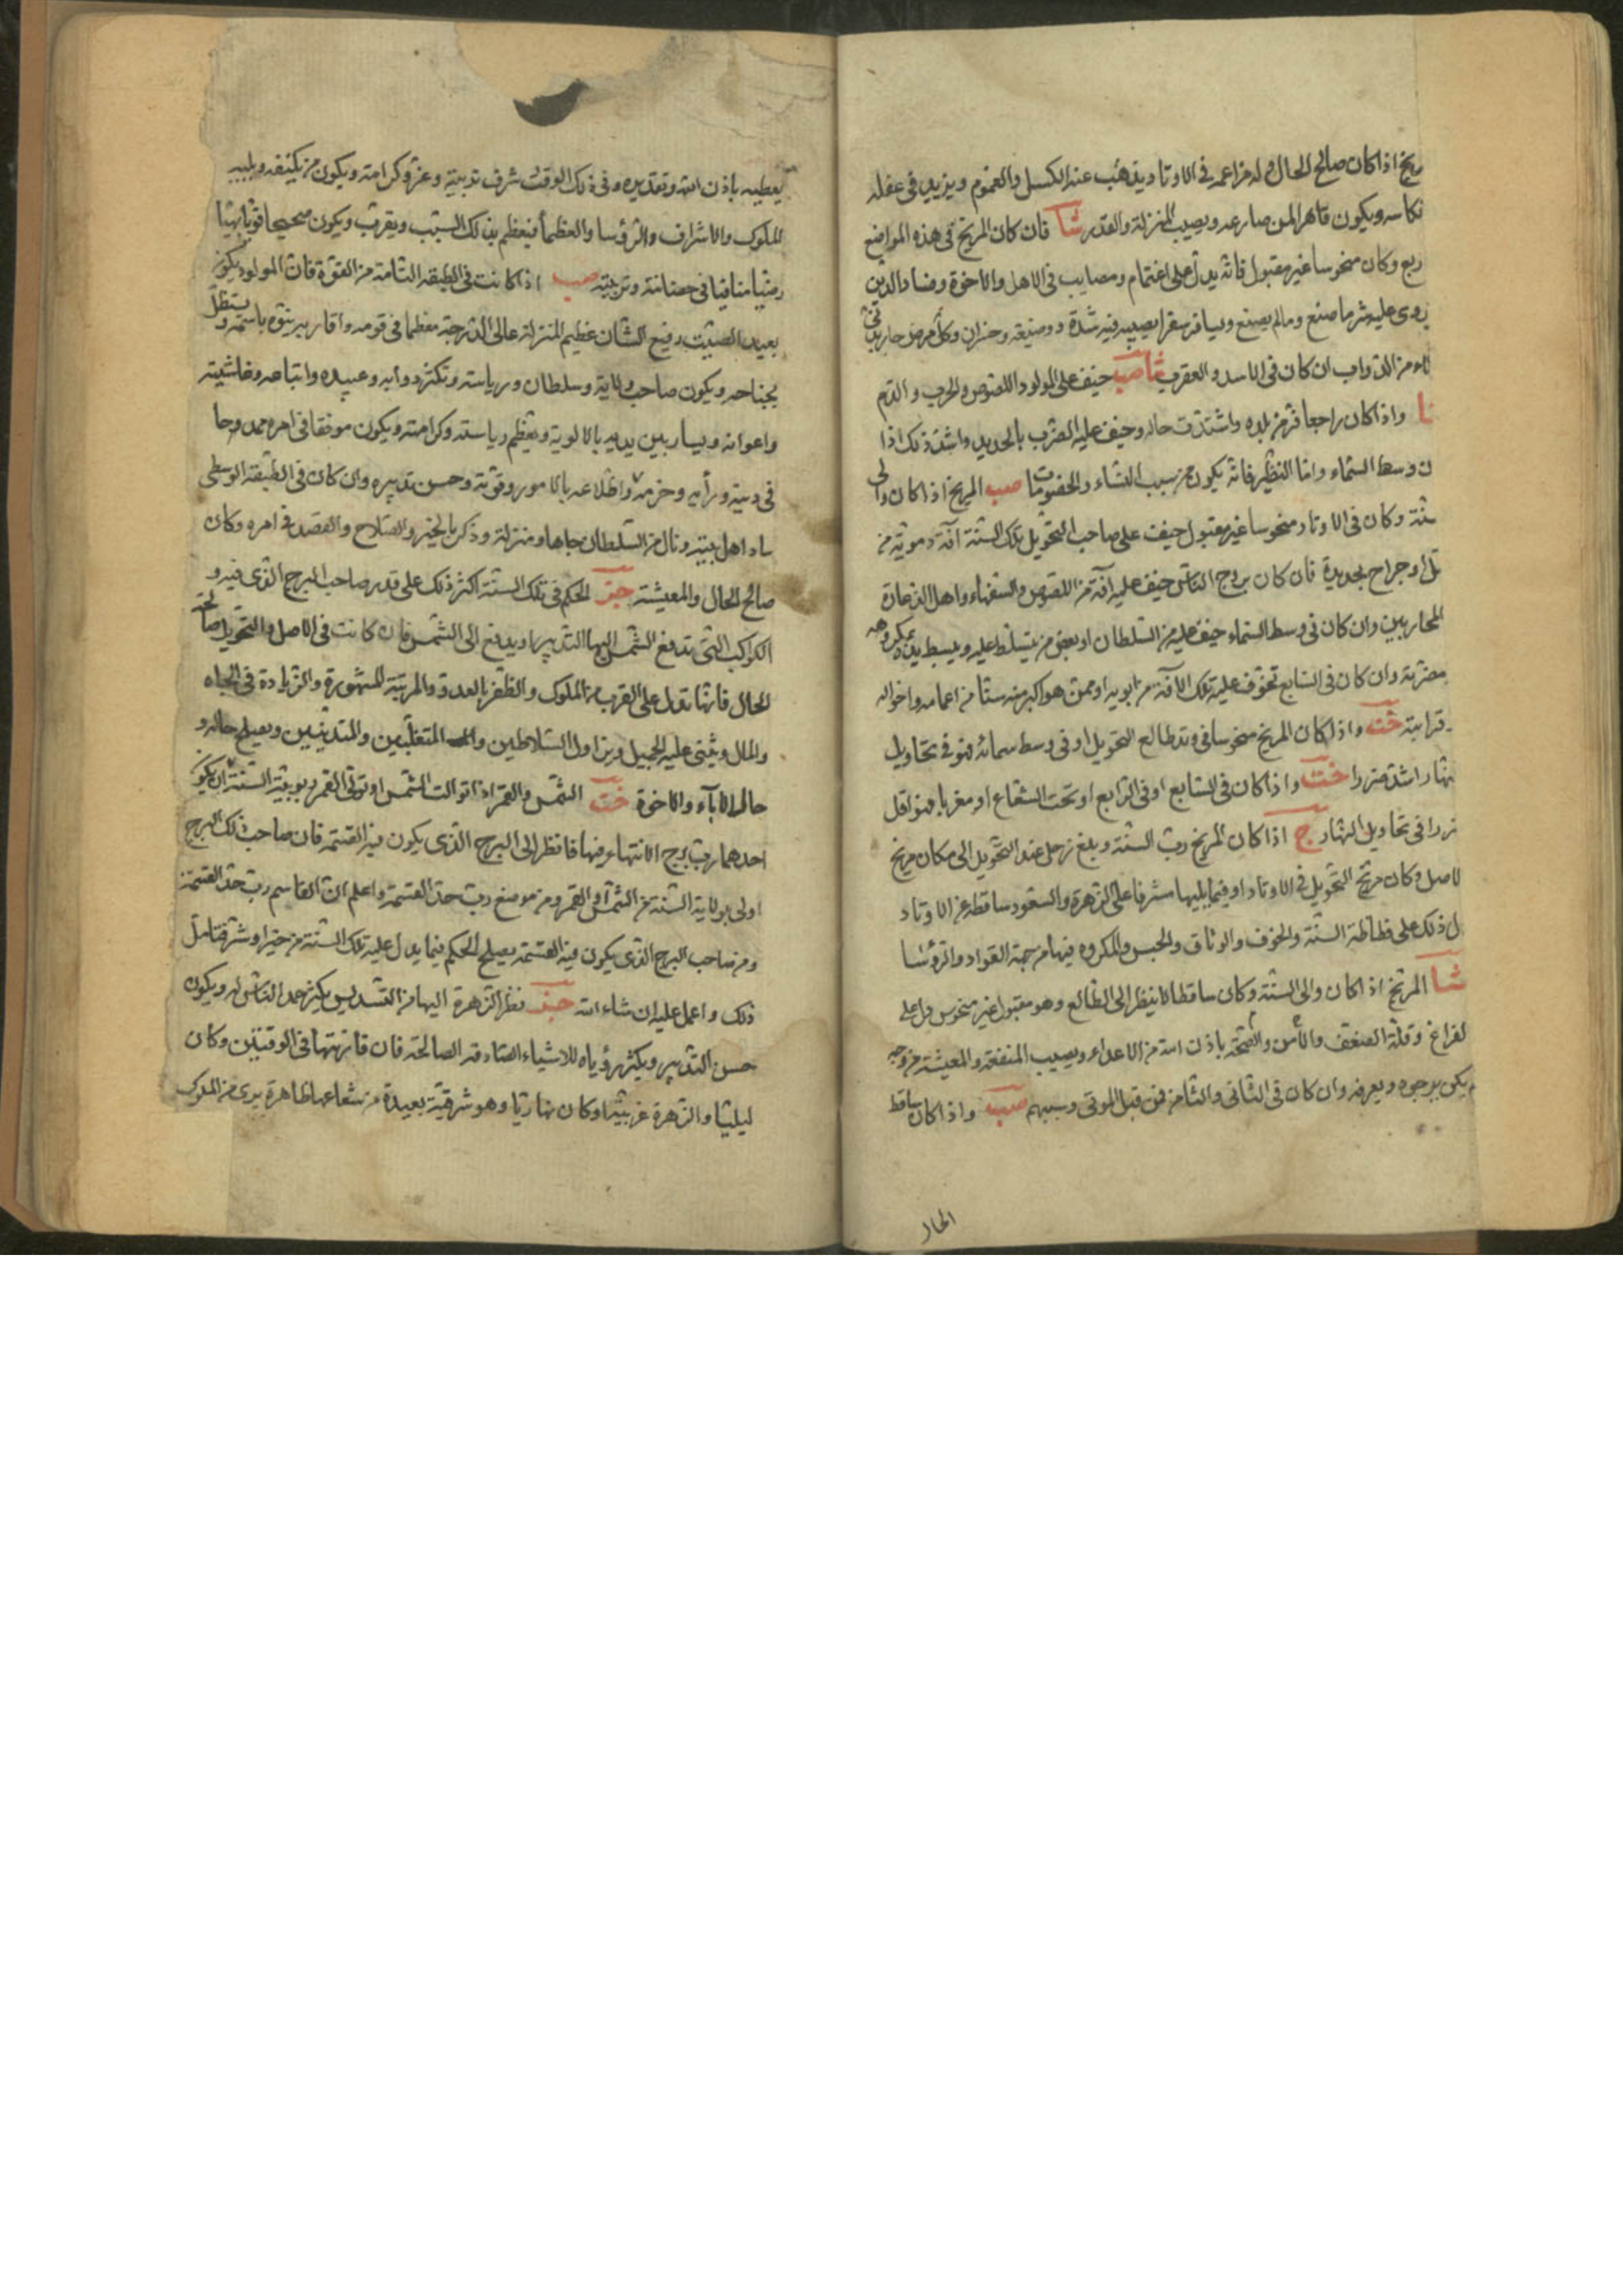 ريخ اذا كان صالح الحال وله مزاعمه فى الاوتاد يذهب عنه الكسل والغموم ويزيد فى عقله
ويكون قاهرا لمن صارعه ويصيب المنزلة والقدر شا فان كان المريخ فى هذه المواضع
ربع وكان منحوسا غير مقبول فانه يدل على اغتمام ومصايب فى الاهل والاخوة وفساد الدين
روى عليه شر ما صنع وما لم يصنع ويسافر سفرا يصيبه فيه شدة وضيعة وخسران وكل مرض حار
من الدواب ان كان فى الاسد والعقرب شا صب خيف على المولود اللصوص والحرب والدم
واذا كان راجعا فر من بلده واشتدت حاله وخيف عليه الضرب بالحديد واشد ذلك اذا
ن وسط السماء واما النظير فانه يكون من سبب النساء والخصومات صب المريخ اذا كان والى
سنة وكان فى الاوتاد منحوسا غير مقبول خيف على صاحب التحويل تلك السنة آفة دموية من
تل او جراح بحديدة فان كان بروج الناس خيف عليه آفة من اللصوص والسفهاء واهل الذعارة
المحاربين وان كان فى وسط السماء خيف عليه من السلطان او بعض من يتسلط عليه ويبسط يده بمكروهه
مضرته وان كان فى السابع تخوف عليه تلك الآفة من ابويه او ممن هو اكبر منه سنا من اعمامه واخواله
قرابته خت واذا كان المريخ منحوسا فى وتد طالع التحويل او فى وسط سمائه فهو فى تحاويل
نهار اشد ضررا خت واذا كان فى السابع او فى الرابع او تحت الشعاع او مغربا فهو اقل
ضررا فى تحاويل النهار ج اذا كان المريخ رب السنة وبلغ زحل عند التحويل الى مكان مريخ
لاصل وكان مريخ التحويل فى الاوتاد او فيما يليها مشرفا على الزهرة والسعود ساقطة عن الاوتاد
ل ذلك على فظاظة السنة والخوف والوثاق والحبس والمكروه فيها من جهة القواد والرؤسا
شا المريخ اذا كان والى السنة وكان ساقطا لا ينظر الى الطالع وهو مقبول غير منحوس دل على
لفراغ وقلة الضعف والأمن والصحة باذن الله من الاعداء ويصيب المنفعة والمعيشة من وجه
م يكن يرجوه ويعرفه وان كان فى الثانى والثامن فمن قبل الموتى وسببهم صب واذا كان ساقط
الحال
يعطيه باذن الله وتقديره وفى ذلك الوقت شرف تربيته وعز وكرامته ويكون من يكنفه ويليه
الملوك والاشراف والرؤسا والعظما فيعظم بذلك السبب ويقرب ويكون صحيحا قويا بهيا
فى حضانته وتربيته صب اذا كانت فى الطبقة التامة من القوة فان المولود يكون
بعيد الصيت رفيع الشان عظيم المنزلة عالى الدرجة معظما فى قومه واقاربه ينوه باسمه ويستظل
بجناحه ويكون صاحب ولاية وسلطان ورياسة وتكثر دوابه وعبيده واتباعه وغاشيته
واعوانه ويسار بين يديه بالالوية وتعظم رياسته وكرامته ويكون موفقا فى امره ممدوحا
فى دينه ورأيه وحزمه واطلاعه بالامور وقوته وحسن تدبيره وان كان فى الطبقة الوسطى
ساد اهل بيته ونال من السلطان جاها ومنزلة وذكر بالخير والصلاح والقصد فى امره وكان
صالح الحال والمعيشة حبر الحكم فى تلك السنة اكثر ذلك على قدر صاحب البرج الذى فيه و
الكواكب التى تدفع الشمس اليها التدبير او يدفع الى الشمس فان كانت فى الاصل والتحويل صالحة
الحال فانها تدل على القرب من الملوك والظفر بالعدو والمرتبة المشهورة والزيادة فى الجاه
والمال ويثنى عليه الجميل ويزاول السلاطين والمتغلبين والمتدينين ويصلح حاله و
حال الآباء والاخوة خت الشمس والقمر اذا توالت الشمس او تولى القمر ربوبية السنة ان يكون
احدهما رب برج الانتهاء فيها فانظر الى البرج الذى يكون فيه القسمة فان صاحب ذلك البرج
اولى بولاية السنة من الشمس او القمر ومن موضع رب حد القسمة واعلم ان القاسم رب حد القسمة
ومن صاحب البرج الذى يكون فيه القسمة يصلح الحكم فيما يدل عليه تلك السنة من خير او شر فتامل
ذلك واعمل عليه ان شاء الله حبر نظر الزهرة اليها من التسديس يكثر حمد الناس له ويكون
حسن التدبير ويكثر رؤياه للاشياء الصادقة الصالحة فان قارنتها فى الوقتين وكان
ليليا والزهرة غربية او كان نهاريا وهو شرقية بعيدة من شعاعها ظاهرة يرى من الملوك